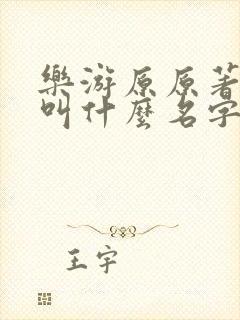 樂游原原著
叫什麼名字
王宇